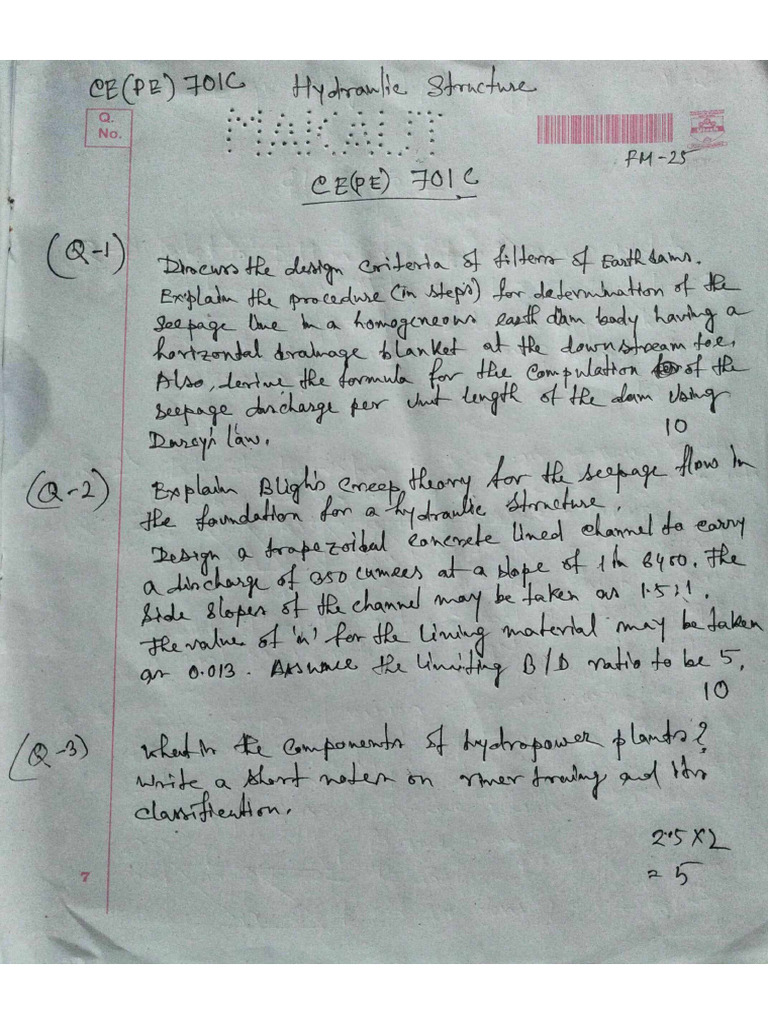 CE(PE) 701C Hydraulic Structure
Q.
No.
MAKAUT
FM-25
CE(PE) 701C
(Q-1)
Discuss the design criteria of filters of Earth dams.
Explain the procedure (in steps) for determination of the
seepage line in a homogeneous earth dam body having a
horizontal drainage blanket at the downstream toe.
Also, derive the formula for the computation of the
seepage discharge per unit length of the dam using
Darcy's law.
10
(Q-2)
Explain Bligh's creep theory for the seepage flow in
the foundation for a hydraulic structure.
Design a trapezoibal concrete lined channel to carry
a discharge of 350 cumecs at a slope of 1 in 6400. The
side slopes of the channel may be taken as 1.5:1.
The value of 'n' for the lining material may be taken
as 0.013. Assume the limiting B/D ratio to be 5.
10
(Q-3)
What is the components of hydropower plants?
Write a short notes on river traning and its
classification.
2.5 X 2
= 5
7